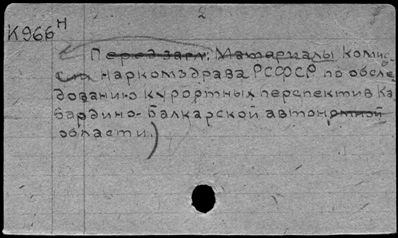 2
К966 Н
Перед загл.: Материалы Комис
сии Наркомздрава РСФСР по обсле
дованию курортных перспектив Ка
бардино-Балкарской автономной
области.)